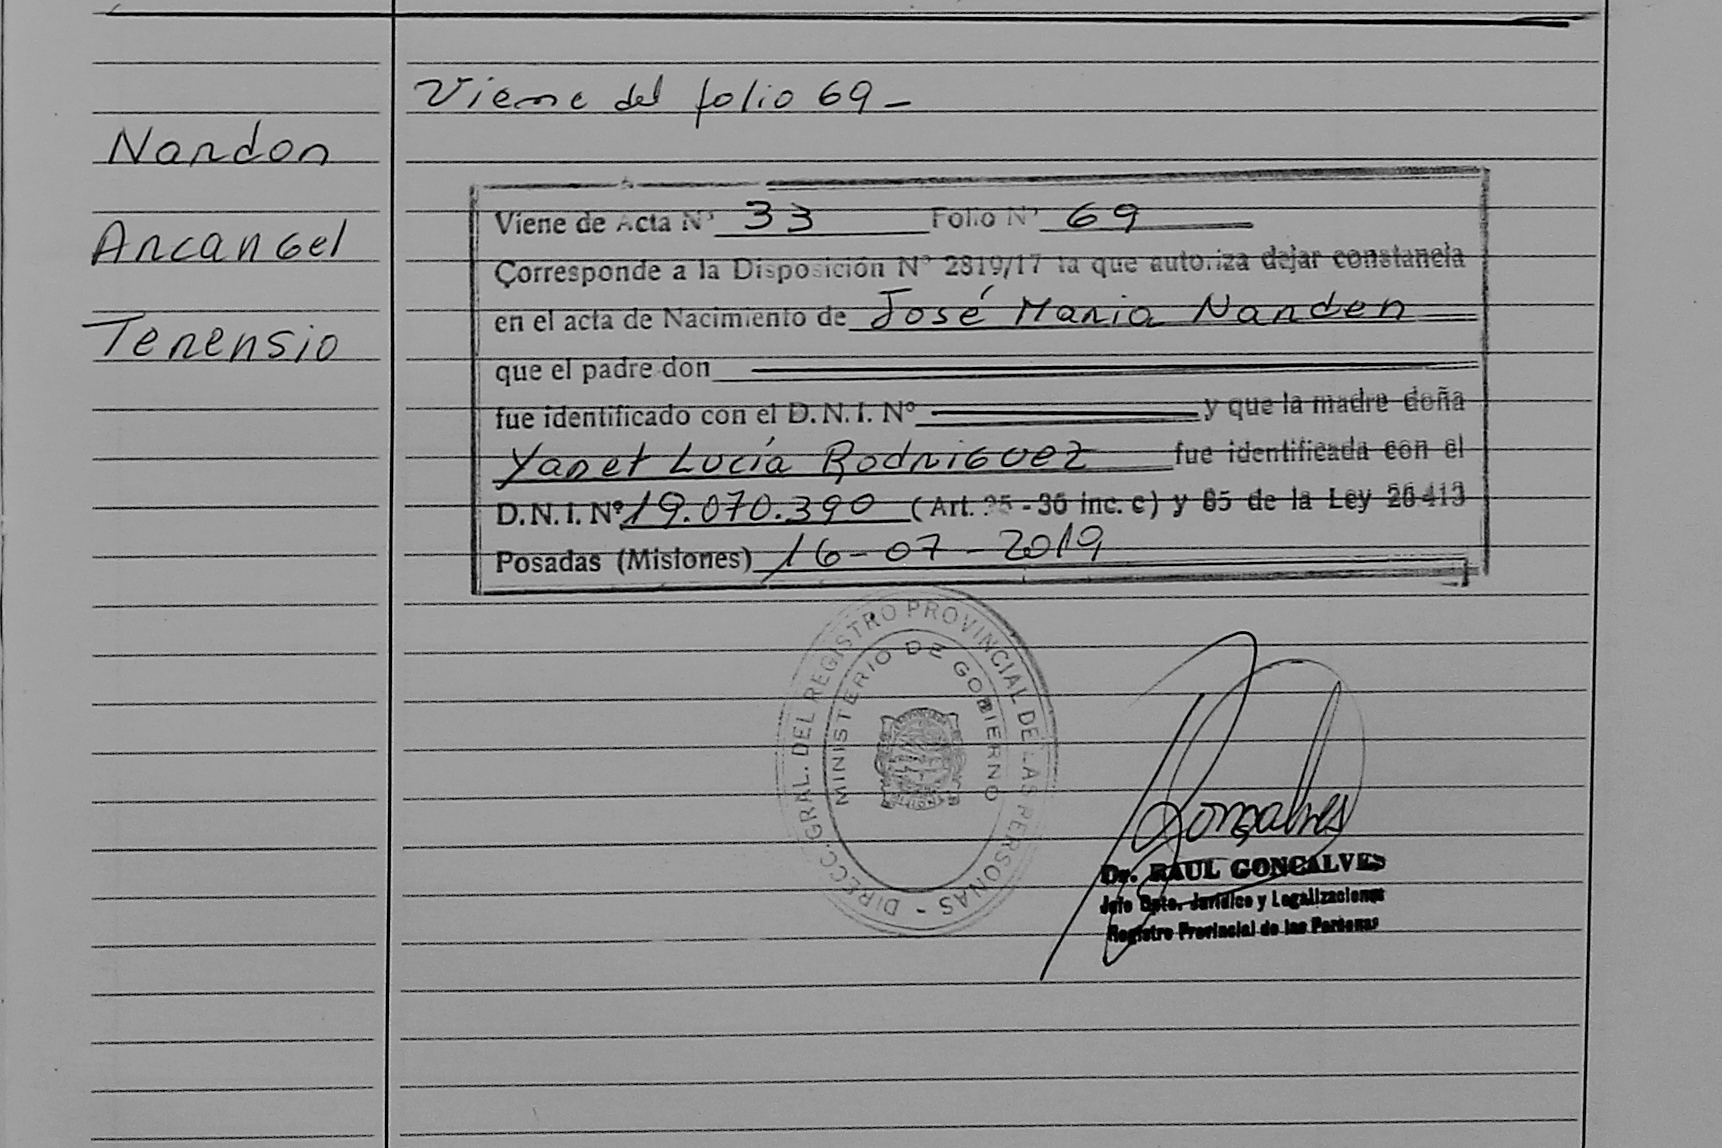 Viene del folio 69 -
Nardon
Arcangel
Terensio
Viene de Acta Nº 33 Folio Nº 69
Corresponde a la Disposición Nº 2819/17 la que autoriza dejar constancia
en el acta de Nacimiento de José Maria Narden
que el padre don
fue identificado con el D.N.I. Nº y que la madre doña
Yanet Lucía Rodriguez fue identificada con el
D.N.I. Nº 19.070.390 (Art. 35 - 36 inc. c) y 85 de la Ley 26413
Posadas (Misiones) 16-07-2019
DIRECC. GRAL. DEL REGISTRO PROVINCIAL DE LAS PERSONAS -
MINISTERIO DE GOBIERNO
Gonçalves
Dr. RAUL GONCALVES
Jefe Dpto. Jurídico y Legalizaciones
Registro Provincial de las Personas